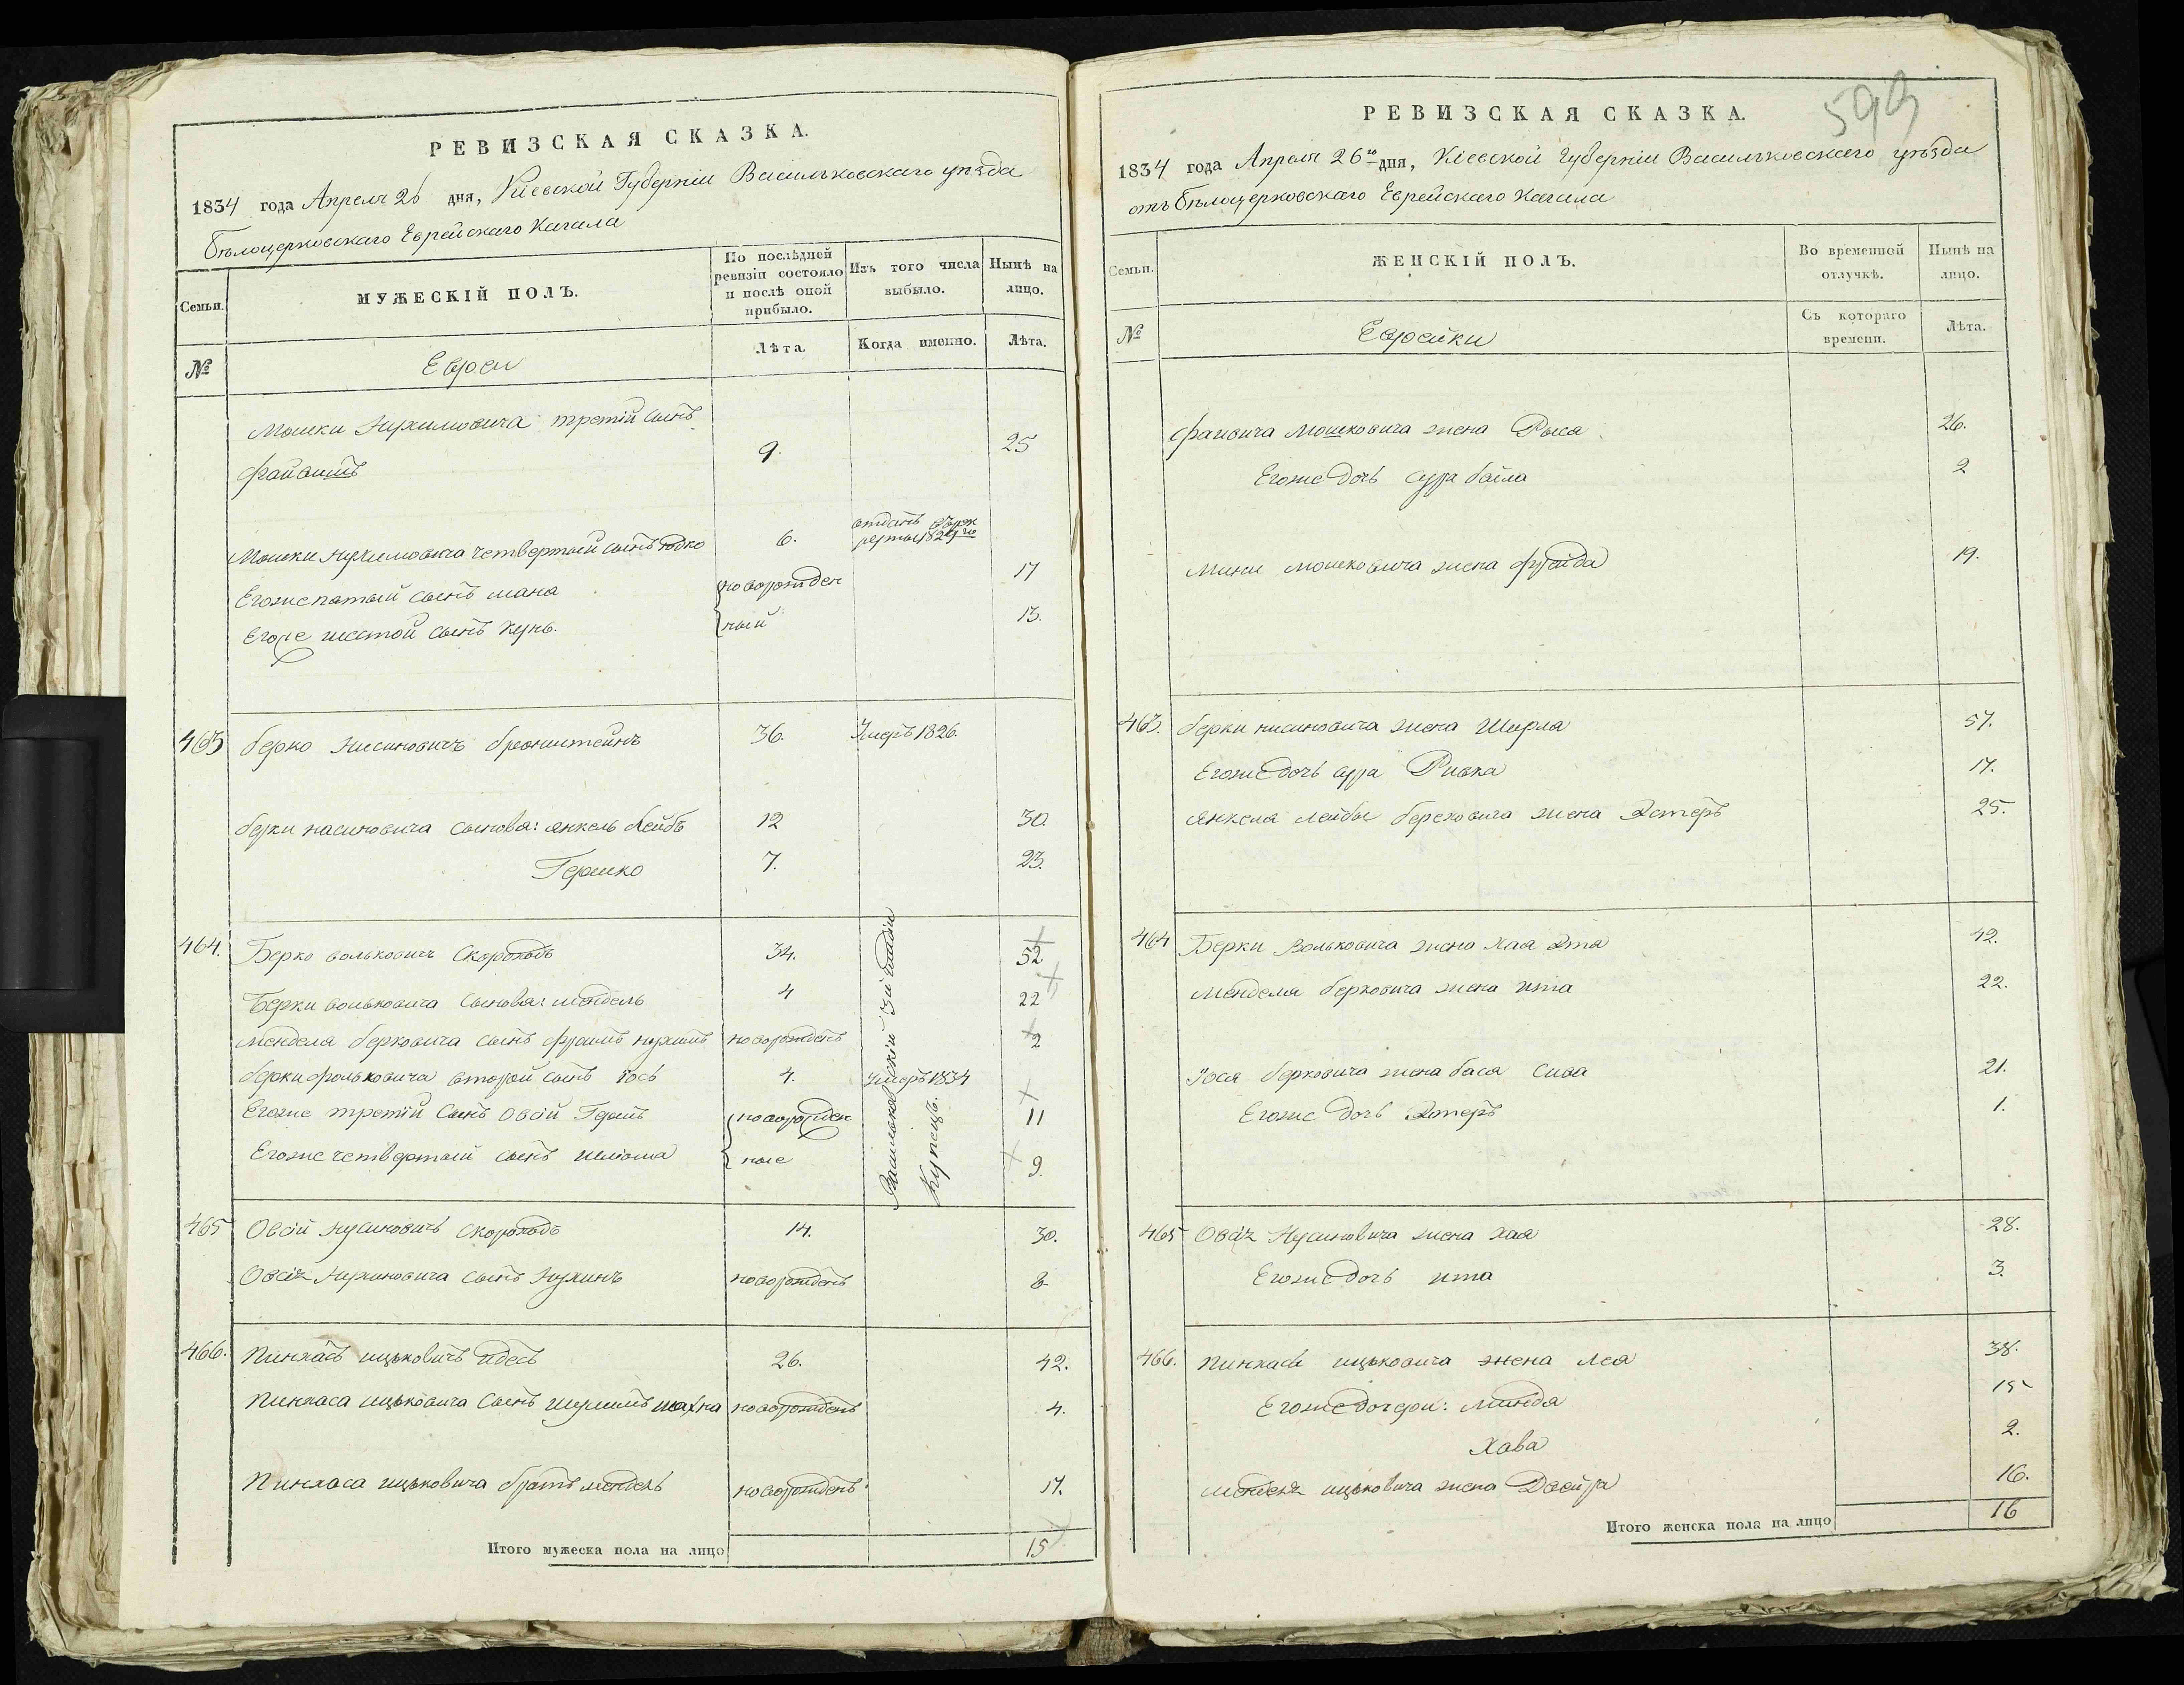 РЕВИЗСКАЯ СКАЗКА.
1834 года Апреля 26 дня, Кіевской Губерніи Васильковскаго уѣзда
Бѣлоцерковскаго Еврейскаго Кагала
Семьи.
МУЖЕСКІЙ ПОЛЪ.
По послѣдней ревизіи состояло и послѣ оной прибыло.
Изъ того числа выбыло.
Нынѣ на лицо.
№
Евреи
Лѣта.
Когда именно.
Лѣта.
Мошки Нухимовича третій сынъ
Файвишъ 9. 25
Мошки Нухимовича четвертый сынъ Юдко 6. отданъ в рек
руты 1829го
Егоже пятый сынъ мана новорожден 17
Егоже шестой сынъ Кунь. ный 13.
463 берко Нисиновичъ бронштейнъ 36. Умеръ 1826.
берки насиновича сыновя: янкель Лейбъ 12 30.
Гершко 7. 23.
464. Берко вольковичъ Скороходъ 34. 52
Берки вольковича сыновя: мендель 4 22
менделя берковича сынъ фроимъ нухимъ новорожденъ 2
берки фольковича второй сынъ Іось 4. умеръ 1834
Егоже третій сынъ Овсій Гершъ новорожден 11
Егоже четвертый сынъ шлиома ные 9.
Васильковскій
Купецъ.
465 Овсій Нусиновичъ скороходъ 14. 30.
Овсія Нухиновича сынъ Нухинъ новорожденъ 8
466. Пинхасъ ицьковичъ идесъ 26. 42.
Пинхаса ицьковича сынъ шулимъ шахна новорожденъ 4.
Пинхаса ицьковича братъ мендель новорожденъ 17.
Итого мужеска пола на лицо 15
РЕВИЗСКАЯ СКАЗКА.
593
1834 года Апреля 26го дня, Кіевской Губерніи Васильковскаго уѣзда
отъ Бѣлоцерковскаго Еврейскаго Кагала
Семьи.
ЖЕНСКІЙ ПОЛЪ.
Во временной отлучкѣ.
Нынѣ на лицо.
№
Еврейки
Съ котораго времени.
Лѣта.
файвиша Мошковича жена Рыся 26.
Егоже дочь сура байла 2
Мини мошковича жена фрейда 19.
463. берки нисиновича жена Шифра 57.
Егоже дочь сура Ривка 17.
Янкеля лейбы берковича жена Эстеръ 25.
464 Берки Вольковича жена Хая Эта 42.
менделя берковича жена ита 22.
Іося берковича жена бася сива 21.
Егоже дочь Эстеръ 1.
465 Овсія Нусиновича жена хая 28.
Егоже дочь ита 3.
466. пинхаса ицьковича жена лея 38.
Егоже дочери: минда 15
Хава 2.
менделя ицьковича жена Двойра 16.
Итого женска пола на лицо 16